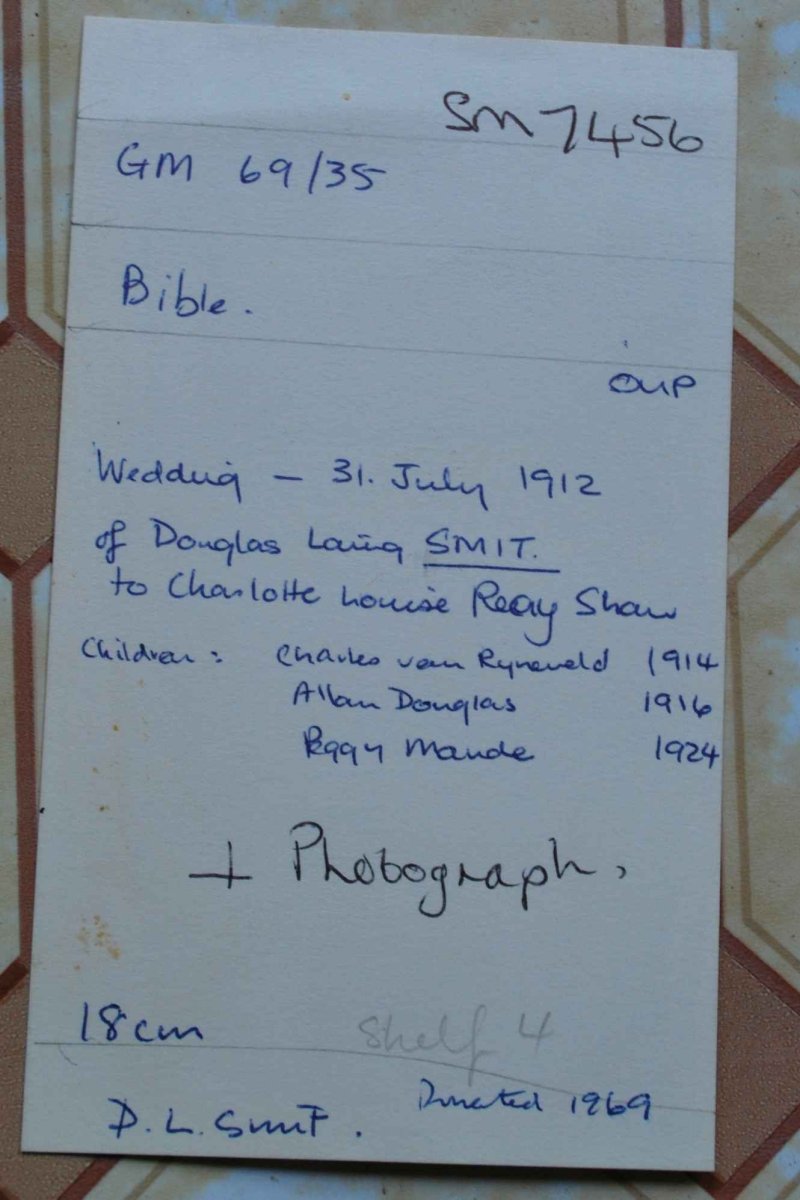 SM 7456
GM 69/35
Bible.
OUP
Wedding - 31. July 1912
of Douglas Laing SMIT.
to Charlotte Louise Reay Shaw
Children: Charles van Ryneveld 1914
Allan Douglas 1916
Peggy Maude 1924
+ Photograph.
18cm
Shelf 4
Donated 1969
D. L. Smit.